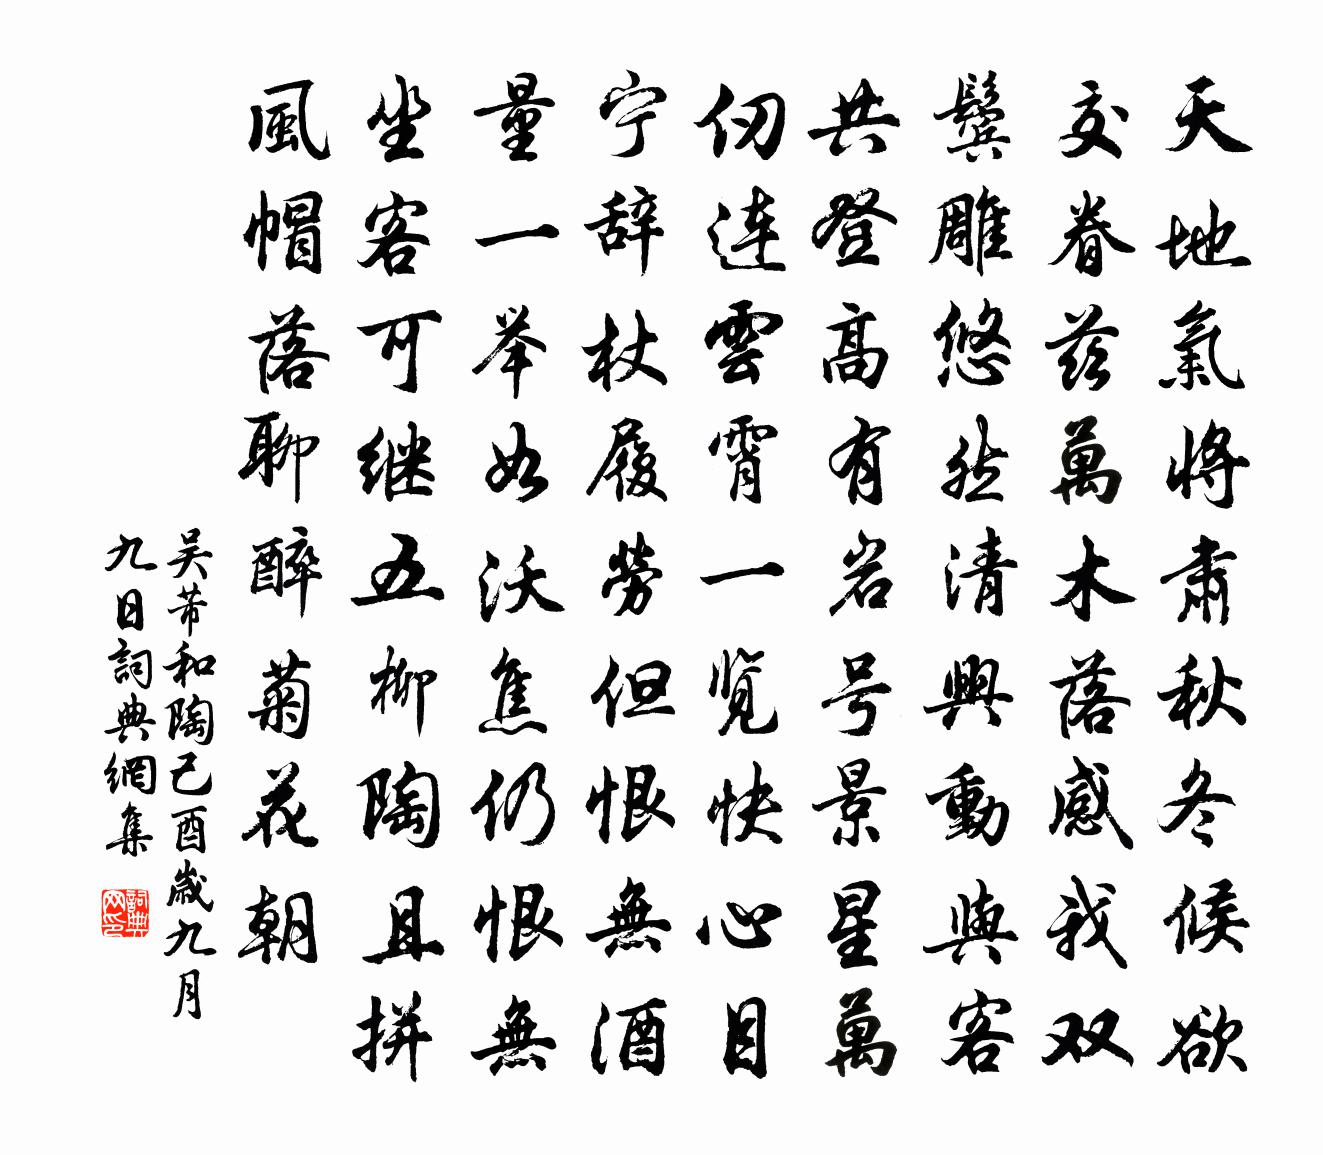 天地氣将肅秋冬候欲
交眷茲萬木落感我双
鬓雕悠然清興動與客
共登高有岩号景星萬
仞连雲霄一览快心目
宁辞杖履勞但恨無酒
量一举如沃焦仍恨無
坐客可继五柳陶且拼
風帽落聊醉菊花朝
吴芾和陶己酉歲九月
九日詞典網集
詞典网印